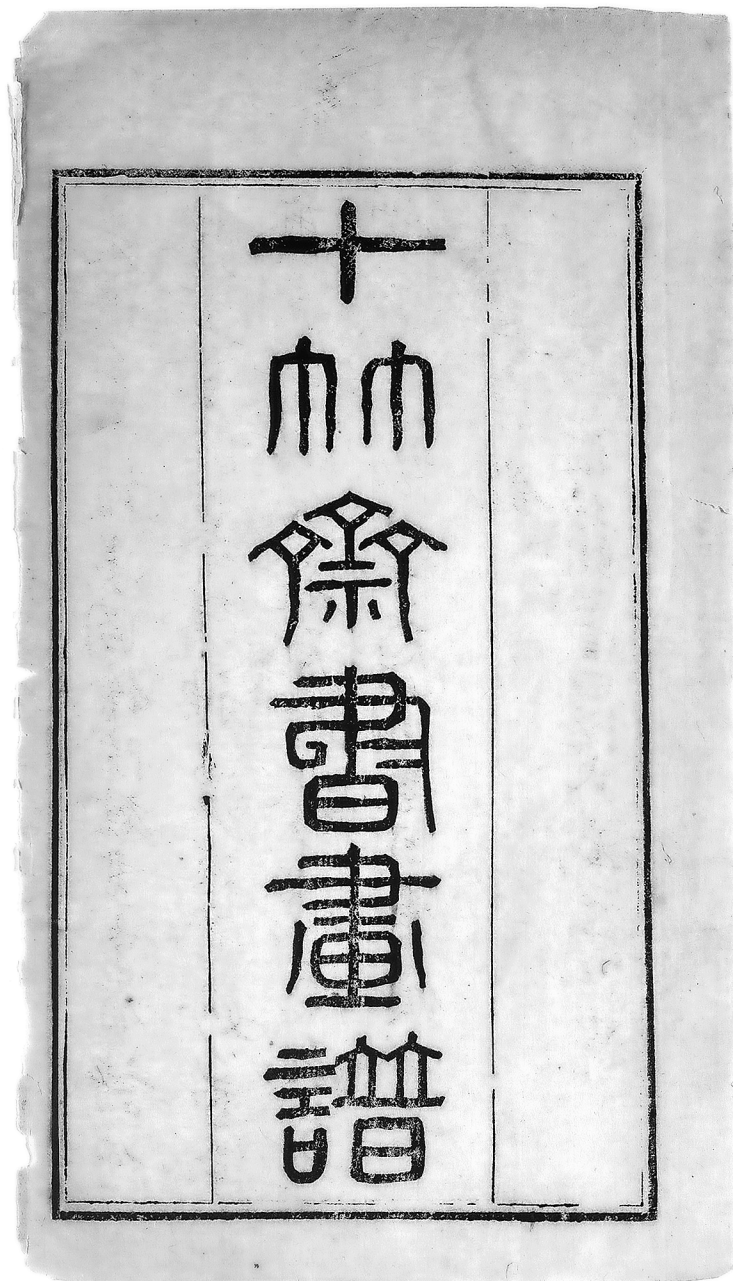 十竹齋書畫譜